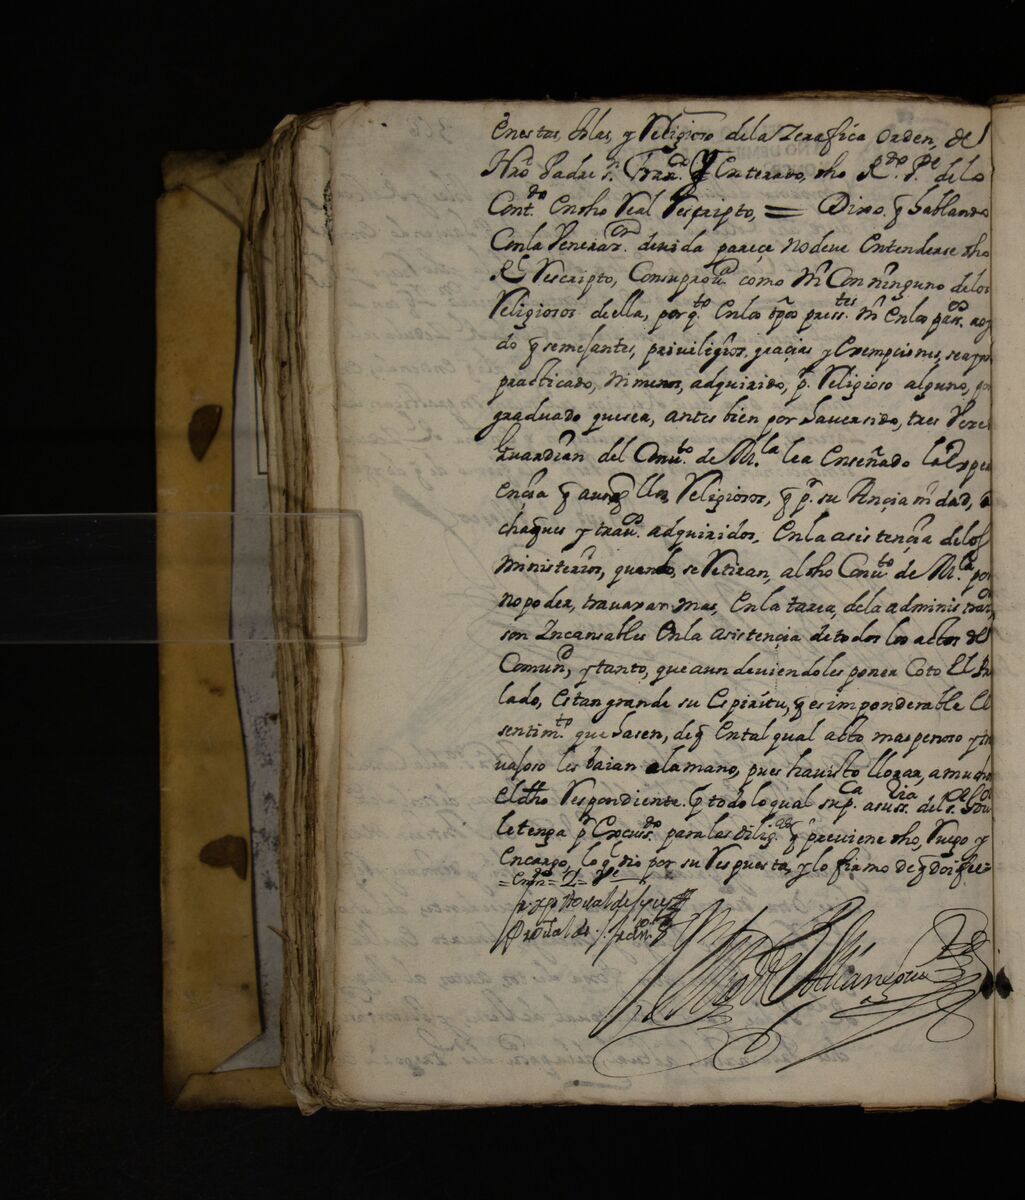 enestas Yslas, y Religioso dela Zerafica orden, de
Nrõ Padre Sn. Franco. Y Enterado, dho Rdo. Pe. delo
Contdo. en dho Real Rescripto, = Dixo. q̃ hablando
Conla Veneraon. devida pareçe no deve Entenderse dho
Rl Rescripto, Consuproua. como ni Con ninguno delos
Religiosos deella, por qto enlos tpõs presstes. ni enlos passos. a oy
do q̃ semejantes, priviligios. graçias y Exempçiones, se aya
practicado, ni menos, adquirido, pr. Religioso alguno, por
graduado que sea, antes bien por haver sido, tres Vezes
Guardian del Convto. de Mla. lea Enseñado la Expe
ençia q̃ aunq̃ los Religiosos, q̃ pr. su Ançianidad, a
chaques y travos. adquiridos, enla asistençia delos
ministerios, quando, se Retiran, al dho Convto de Mla. por
no poder, travaxar mas, en la tarea, dela administraon,
son Incansables enla asistençia de todos los actos de
Comund, y tanto, que aun deviendoles poner Coto El Pre
lado, es tan grande su Espiritu, q̃ es imponderable El
sentimto. que hasen, de q̃ en tal qual acto mas penoso y tra
vajoso les vaian ala mano, pues ha visto llorar, a muchos
el dho Respondiente. q̃ todo lo qual supca. a su ssria. del s. Govor
le tenga pr. Excussdo. para las diligas. q̃ previene dho, Ruego y
Encargo, lo q̃ dio por su Respuesta, y lo firmo de q̃ doi fee =
= Emdo = 2 = Ve